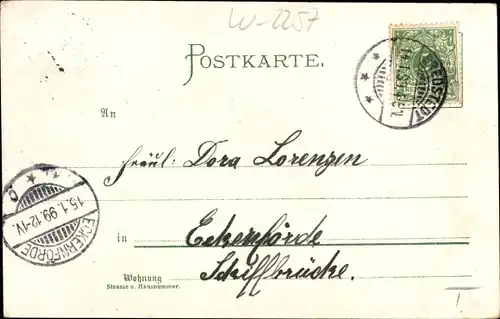 W-2257
POSTKARTE.
An
Fräul: Dora Lorenzen
in Eckenförde
Schiffbrücke.
Wohnung
Strasse u. Hausnummer.
BREDSTEDT
ECKERNFÖRDE
15.1.99.12-1V.